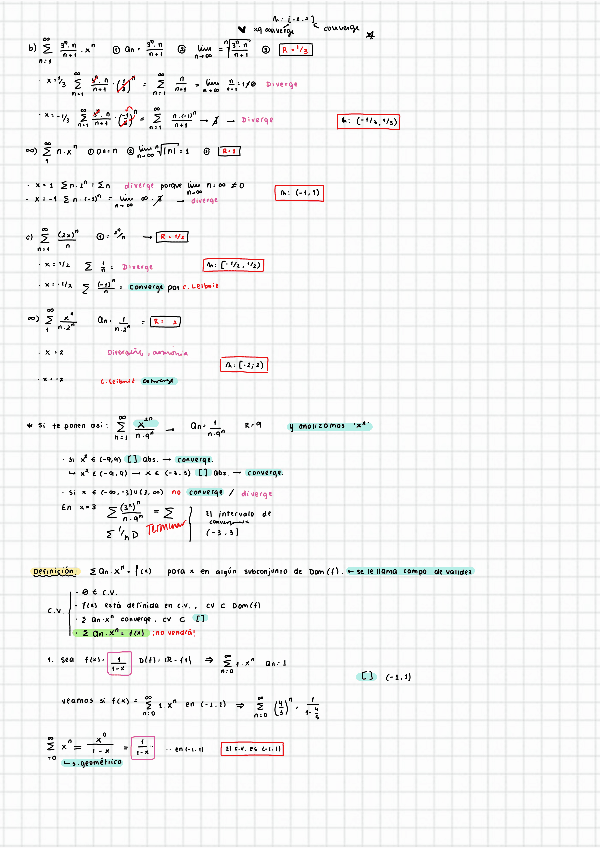 b) ∑ n=1 ∞ 3ⁿ·n/n+1 · xⁿ ① an = 3ⁿ·n/n+1 ② lim n→∞ ⁿ√3ⁿ·n/n+1 ③ R = 1/3
· x = 1/3 ∑ n=1 ∞ 3ⁿ·n/n+1 · (1/3)ⁿ = ∑ n=1 ∞ n/n+1 = lim n→∞ n/n+1 = 1 ≠ 0 Diverge
· x = -1/3 ∑ n=1 ∞ 3ⁿ·n/n+1 · (-1/3)ⁿ = ∑ n=1 ∞ n·(-1)ⁿ/n+1 → ∄ → Diverge
∞) ∑ 1 ∞ n·xⁿ ① an = n ② lim n→∞ ⁿ√|n| = 1
· x = 1 ∑ n·1ⁿ = ∑ n diverge porque lim n→∞ n = ∞ ≠ 0 (-1, 1)
· x = -1 ∑ n·(-1)ⁿ = lim n→∞ ∞·∄ → diverge
c) ∑ n=1 ∞ (2x)ⁿ/n → R = 1/2
· x = 1/2 ∑ 1/n = Diverge [-1/2, 1/2)
· x = -1/2 ∑ (-1)ⁿ/n = converge por C. Leibniz
∞) ∑ 1 ∞ xⁿ/n·2ⁿ an = 1/n·2ⁿ = R = 2
· x = 2 armonia
[-2;2)
· x = -2 C. Leibniz converge
* Si te ponen asi: ∑ n=1 ∞ x²ⁿ/n·9ⁿ → an = 1/n·9ⁿ R = 9 y analizamos "x²"
· Si x² ∈ (-9,9) [] abs. → converge.
↳ x² ∈ (-9,9) → x ∈ (-3,3) [] abs. → converge.
· Si x ∈ (-∞,-3)∪(3,∞) no converge / diverge
En x=3 ∑ (3²)ⁿ/n·9ⁿ = ∑ El intervalo de
∑ 1/n D Terminar convergencia
(-3,3)
Definición: ∑ an·xⁿ = f(x) para x en algún subconjunto de Dom(f). ← se le llama campo de validez
· 0 ∈ C.V.
C.V. · f(x) está definida en C.V., CV ⊂ Dom(f)
· ∑ an·xⁿ converge, CV ⊂ []
· ∑ an·xⁿ = f(x) ¡no vendrá!
1. Sea f(x) = 1/1-x D(f) = ℝ-{1} ⇒ ∑ n=0 ∞ 1·xⁿ an = 1
[] (-1,1)
veamos si f(x) = ∑ n=0 ∞ 1·xⁿ en (-1,1) ⇒ ∑ n=0 ∞
∑ xⁿ = x⁰/1-x = 1/1-x ... en (-1,1) El C.V. es (-1,1)
↳ s. geométrica